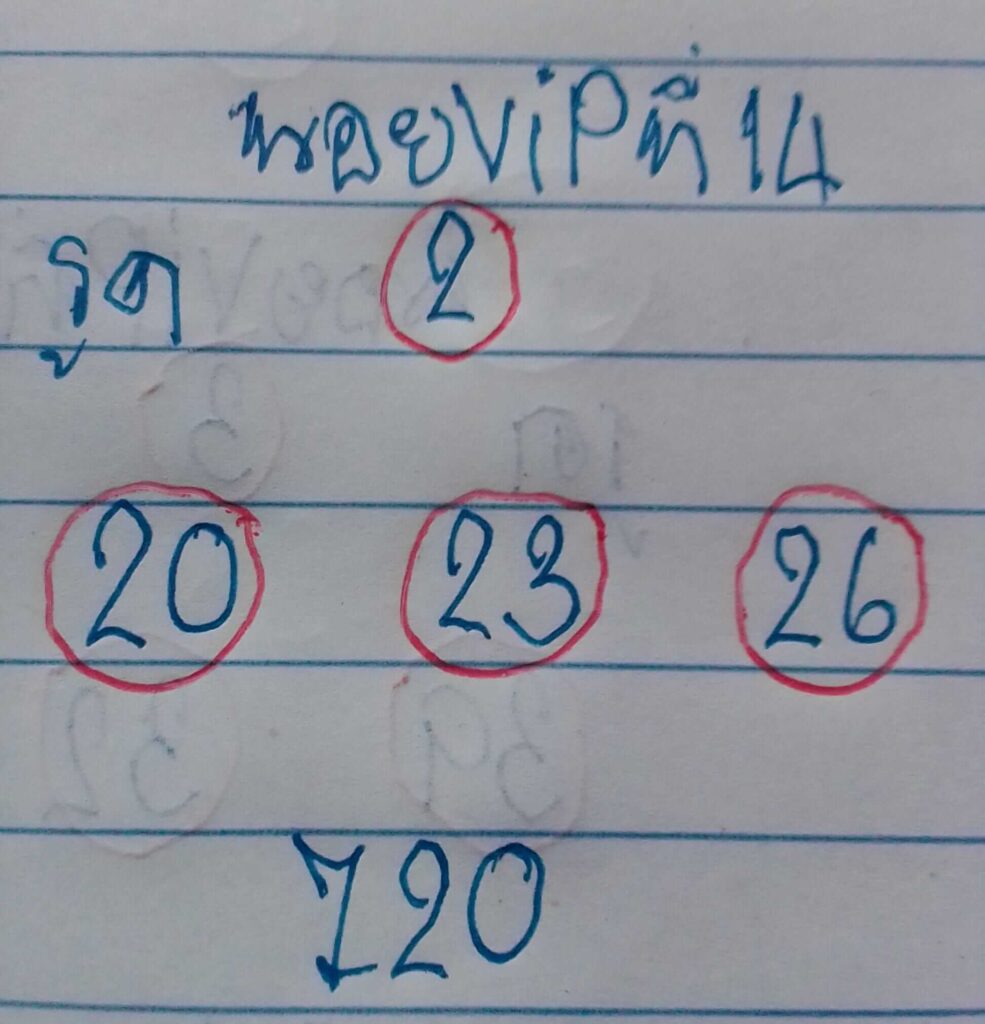 หวยViPที่ 14
รูด 2
20 23 26
720